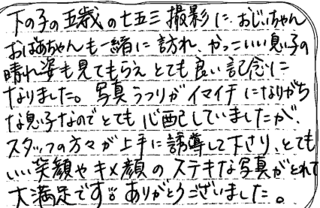 下の子の五歳の七五三撮影に、おじいちゃん
おばあちゃんも一緒に訪れ、かっこいい息子の
晴れ姿も見てもらえとても良い記念に
なりました。写真うつりがイマイチになりがち
な息子なのでとても心配していましたが、
スタッフの方々が上手に誘導して下さり、とても
いい笑顔やキメ顔のステキな写真がとれて
大満足です。ありがとうございました。